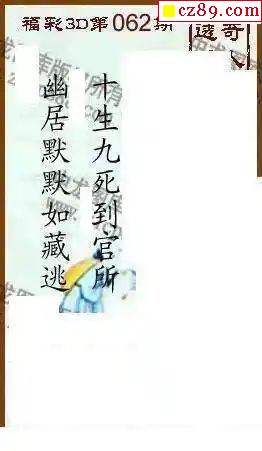 cz89.com
福彩3D第062期
透奇
十生九死到官所
幽居默默如藏逃